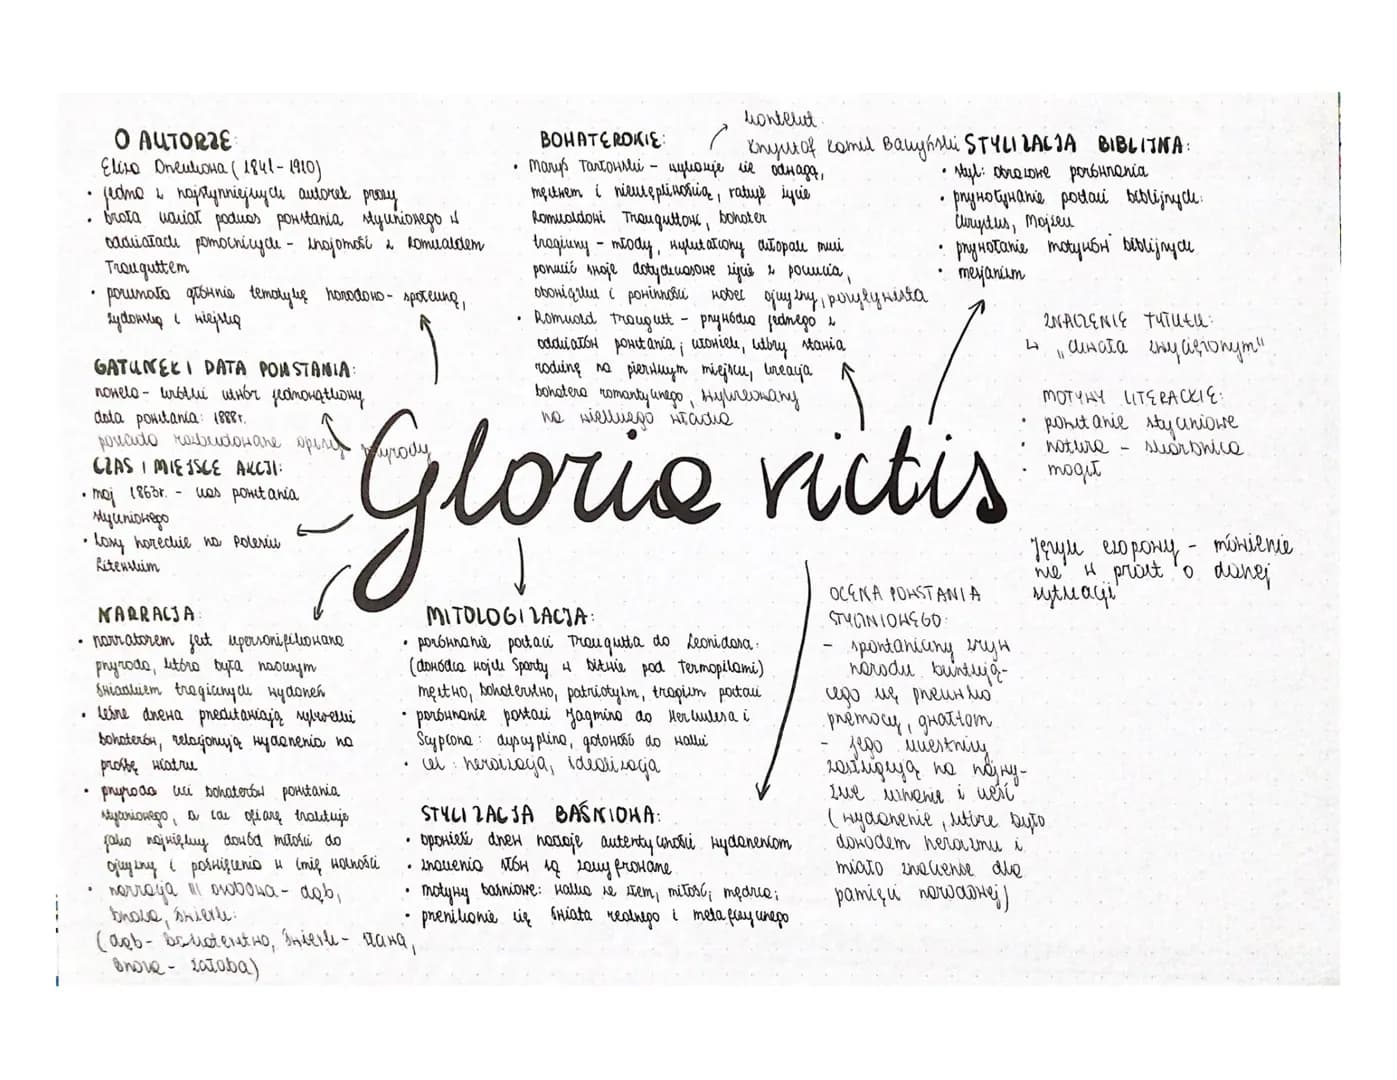 O AUTORZE:
Eliza Orzeszkowa (1841-1910)
• jedna z najsłynniejszych autorek prozy
• brała udział podczas powstania styczniowego w
oddziałach pomocniczych - znajomość z Romualdem
Trauguttem
• poruszała głównie tematykę narodowo-społeczną,
żydowską i wiejską
GATUNEK I DATA POWSTANIA:
nowela - krótki utwór jednowątkowy
data powstania: 1888r.
posiada rozbudowane opisy przyrody
CZAS I MIEJSCE AKCJI:
• maj 1863r. - czas powstania
styczniowego
• Lasy horeckie na Polesiu
Litewskim
NARRACJA:
• narratorem jest upersonifikowana
przyroda, która była naocznym
świadkiem tragicznych wydarzeń
• leśne drzewa przedstawiają sylwetki
bohaterów, relacjonują wydarzenia na
prośbę wiatru
• przyroda czci bohaterów powstania
styczniowego, a ich ofiarę traktuje
jako największy dowód miłości do
ojczyzny i poświęcenia w imię wolności
• narracja III osobowa - dąb,
brzoza, świerk:
(dąb - bohaterstwo, świerk - sława,
brzoza - żałoba)
Gloria victis
BOHATEROWIE:
kontekst:
Krzysztof Kamil Baczyński
• Maryś Tarłowski - wykazuje się odwagą,
męstwem i nieustępliwością, ratuje życie
Romualdowi Trauguttowi, bohater
tragiczny - młody, wykształcony chłopak musi
porzucić swoje dotychczasowe życie z poczucia
obowiązku i powinności wobec ojczyzny, pozytywista
• Romuald Traugutt - przywódca jednego z
oddziałów powstania; człowiek, który stawia
rodzinę na pierwszym miejscu, kreacja
bohatera romantycznego, wykreowany
na wielkiego władcę
MITOLOGIZACJA:
• porównanie postaci Traugutta do Leonidasa:
(dowódca wojsk Sparty w bitwie pod Termopilami)
męstwo, bohaterstwo, patriotyzm, tragizm postaci
• porównanie postaci Jagmina do Herkulesa i
Scypiona: dyscyplina, gotowość do walki
• cel: heroizacja, idealizacja
STYLIZACJA BAŚNIOWA:
• opowieść drzew nadaje autentyczności wydarzeniom
• znaczenia słów są zaszyfrowane
• motywy baśniowe: walka ze złem, miłość, mędrca;
• przenikanie się świata realnego i metafizycznego
STYLIZACJA BIBLIJNA:
• styl: obrazowe porównania
• przywoływanie postaci biblijnych:
Chrystus, Mojżesz
• przywołanie motywów biblijnych
• mesjanizm
ZNACZENIE TYTUŁU:
↳ „chwała zwyciężonym"
MOTYWY LITERACKIE:
• powstanie styczniowe
• natura - skarbnica
• mogił
Język ezopowy - mówienie
nie w prost o danej
sytuacji
OCENA POWSTANIA
STYCZNIOWEGO:
- spontaniczny zryw
narodu buntują-
cego się przeciwko
przemocy, gwałtom
- jego uczestnicy
zasługują na najwy-
ższe uznanie i cześć
(wydarzenie, które było
dowodem heroizmu i
miało znaczenie dla
pamięci narodowej)